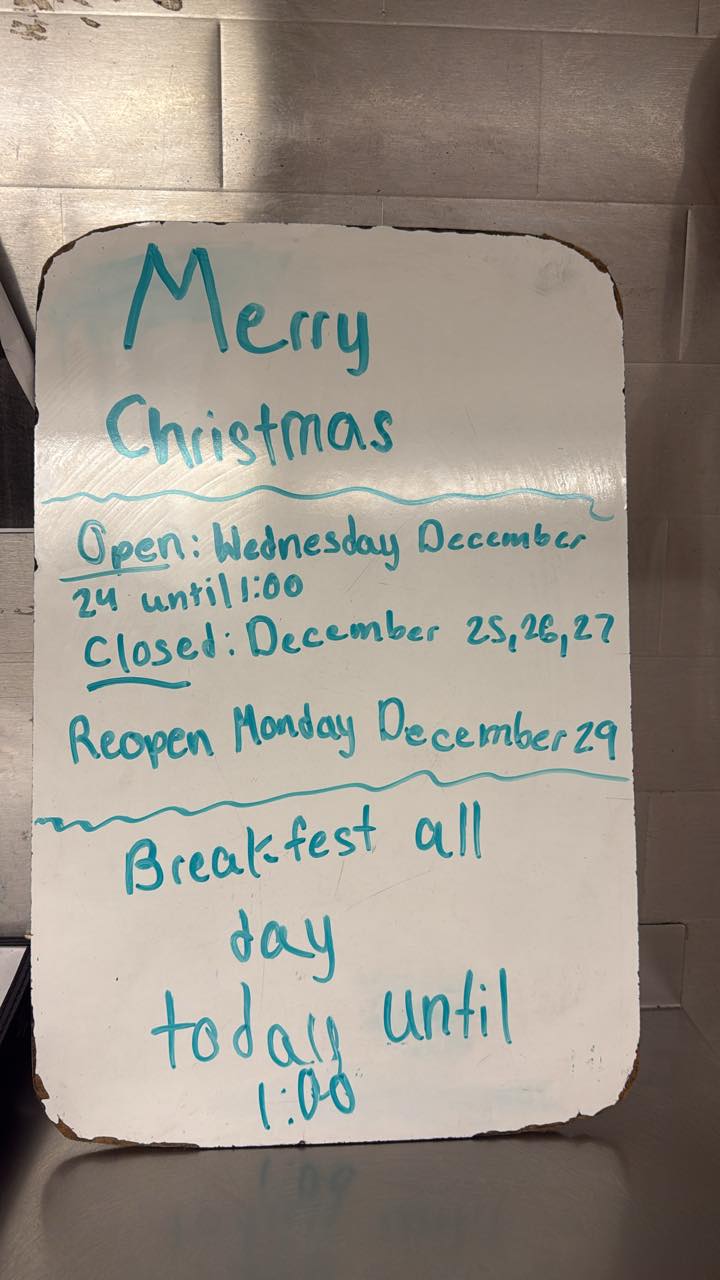 Merry
Christmas
Open: Wednesday December
24 until 1:00
Closed: December 25, 26, 27
Reopen Monday December 29
Breakfest all
day
today until
1:00